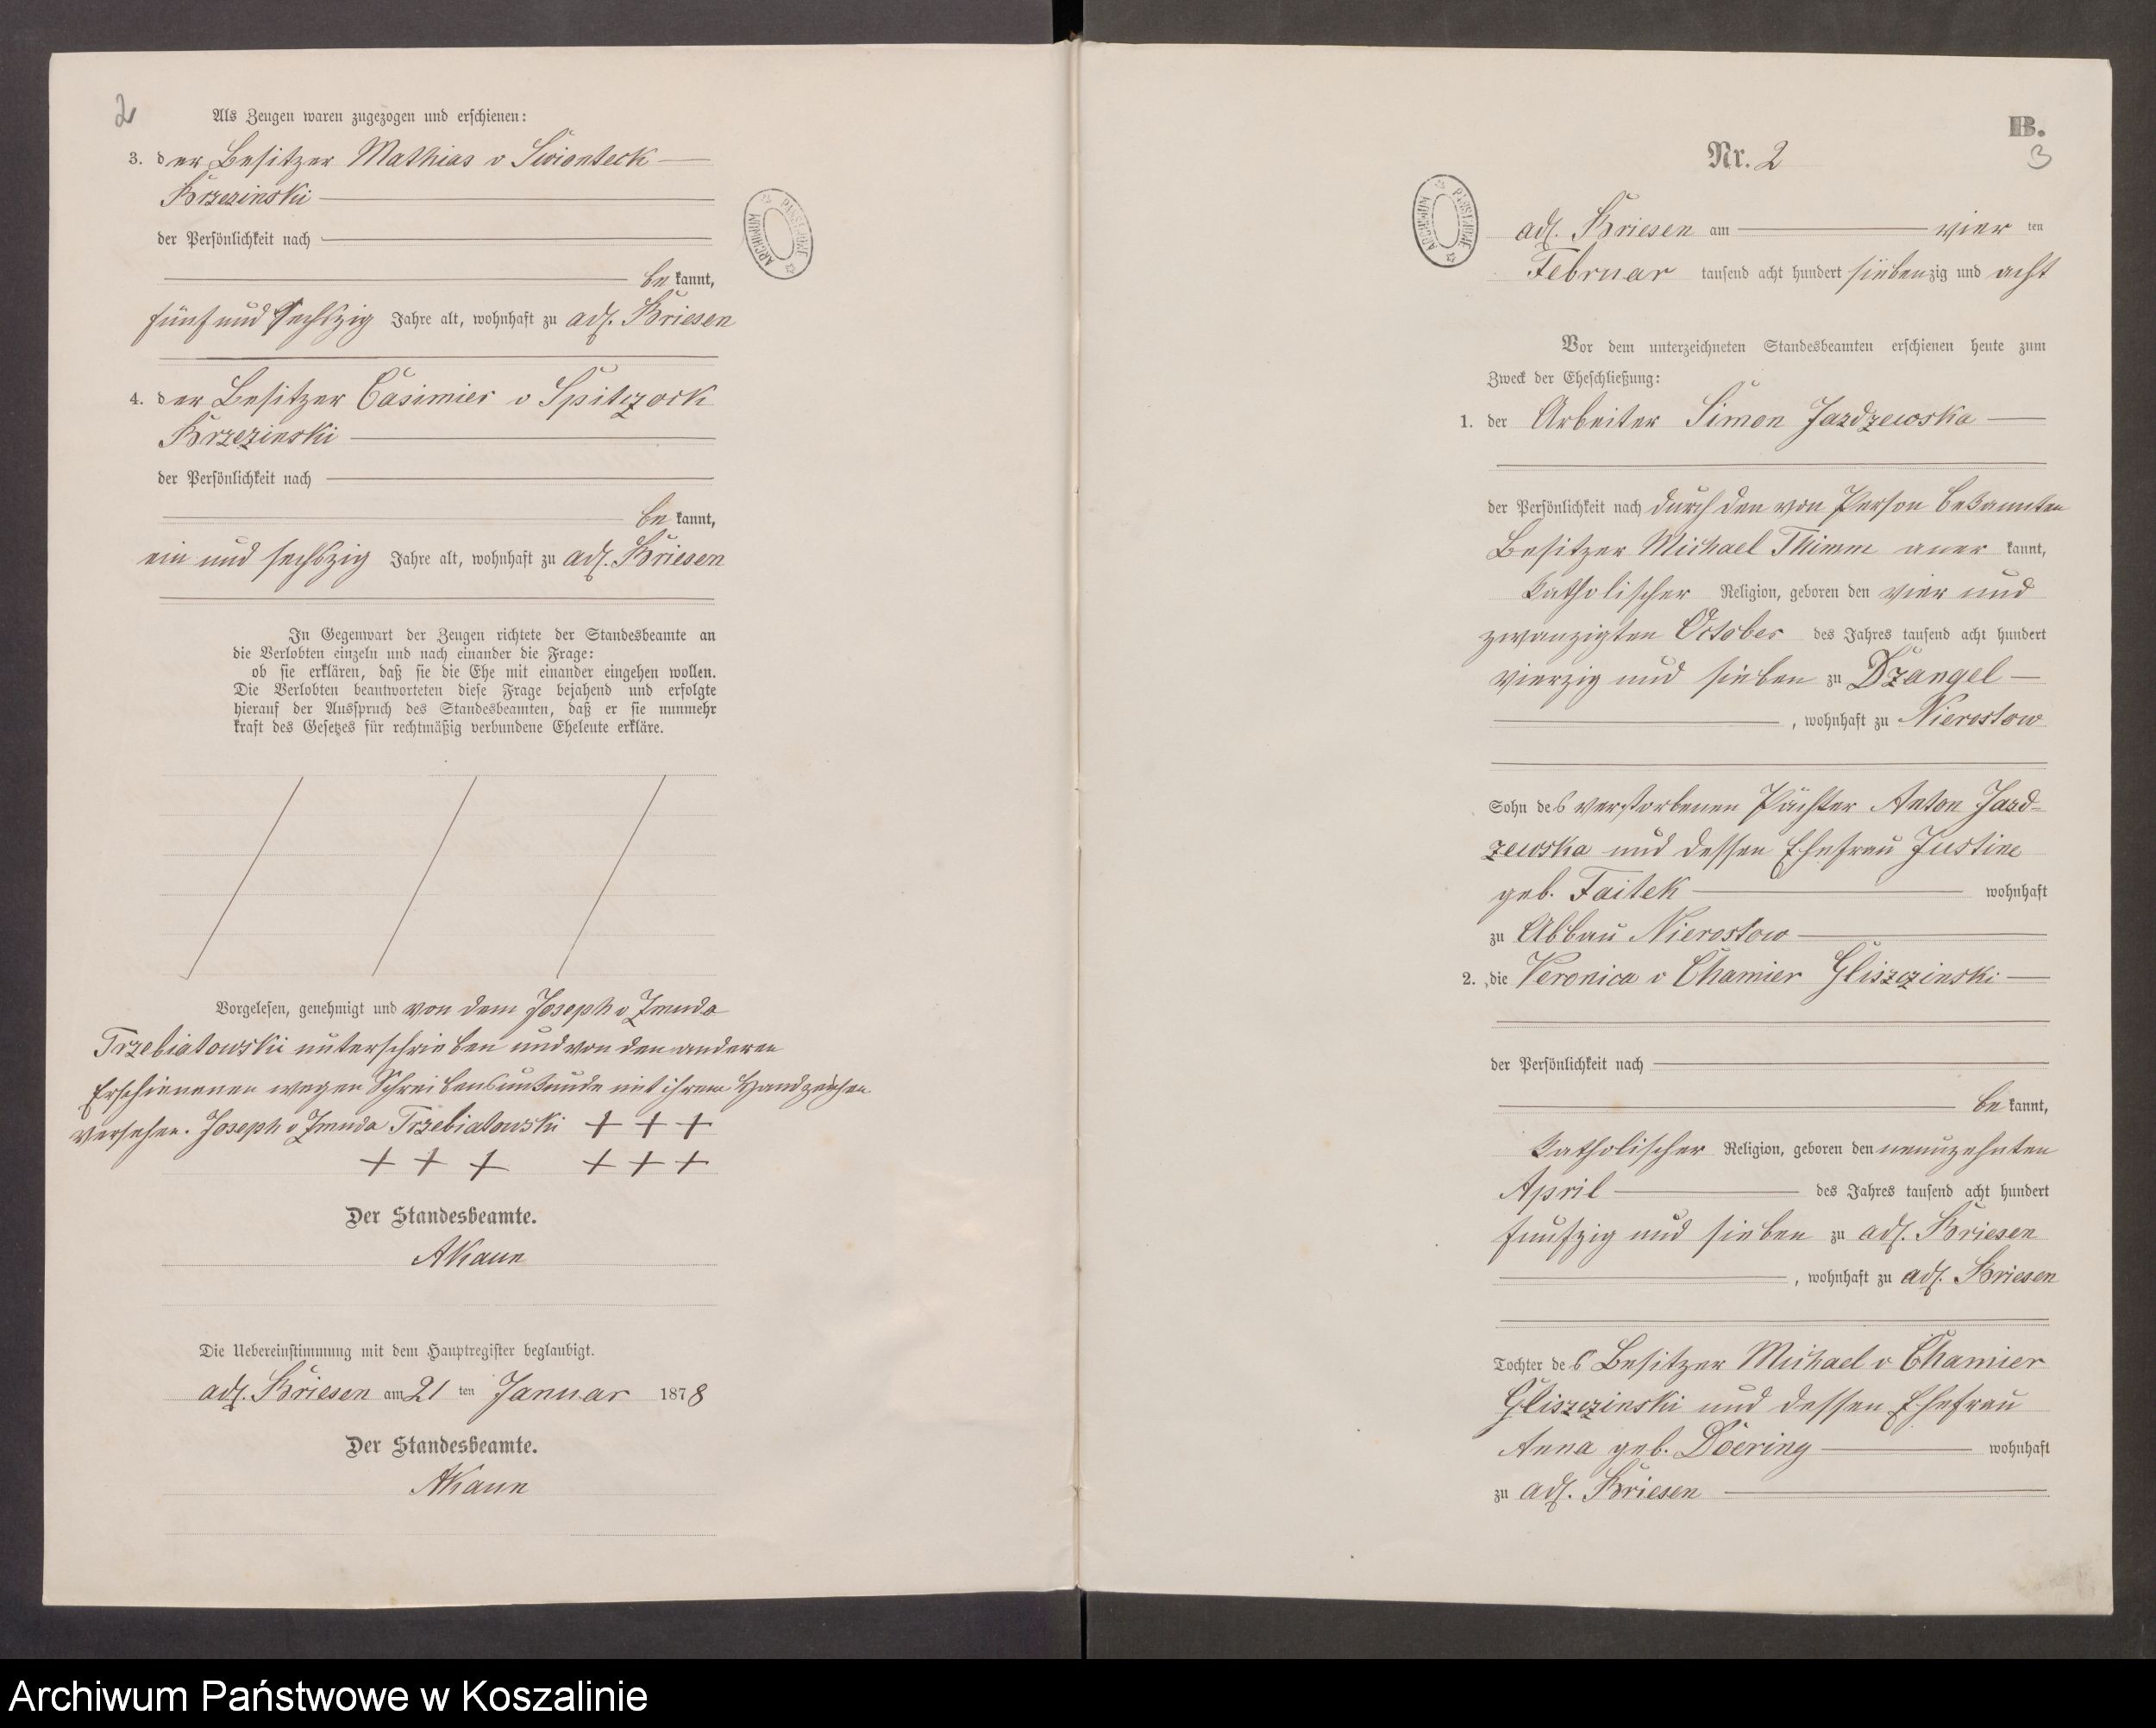 2
Als Zeugen waren zugezogen und erschienen:
3. der Besitzer Mathias v Swionteck
Brzezinski
der Persönlichkeit nach
be kannt,
fünf und sechszig Jahre alt, wohnhaft zu adl. Briesen
4. der Besitzer Casimier v Spitzock
Brzezinski
der Persönlichkeit nach
be kannt,
ein und sechszig Jahre alt, wohnhaft zu adl. Briesen
In Gegenwart der Zeugen richtete der Standesbeamte an
die Verlobten einzeln und nach einander die Frage:
ob sie erklären, daß sie die Ehe mit einander eingehen wollen.
Die Verlobten beantworteten diese Frage bejahend und erfolgte
hierauf der Ausspruch des Standesbeamten, daß er sie nunmehr
kraft des Gesetzes für rechtmäßig verbundene Eheleute erkläre.
Vorgelesen, genehmigt und von dem Joseph v Zmuda
Trzebiatowski unterschrieben und von den anderen
Erschienenen wegen Schreibensunkunde mit ihrem Handzeichen
versehen. Joseph v Zmuda Trzebiatowski + + +
+ + + + + +
Der Standesbeamte.
AKaun
Die Uebereinstimmung mit dem Hauptregister beglaubigt.
adl. Briesen am 21 ten Januar 1878
Der Standesbeamte.
AKaun
ARCHIWUM PAŃSTWOWE
B.
3
Nr. 2
ARCHIWUM PAŃSTWOWE
adl. Briesen am vier ten
Februar tausend acht hundert siebenzig und acht
Vor dem unterzeichneten Standesbeamten erschienen heute zum
Zweck der Eheschließung:
1. der Arbeiter Simon Jazdzewska
der Persönlichkeit nach durch den von Person bekannten
Besitzer Michael Thimm aner kannt,
katholischer Religion, geboren den vier und
zwanzigten October des Jahres tausend acht hundert
vierzig und sieben zu Dzangel
, wohnhaft zu Nierostow
Sohn des verstorbenen Pächter Anton Jazd-
zewska und dessen Ehefrau Justine
geb. Faitek wohnhaft
zu Abbau Nierostow
2. die Veronica v Chamier Gliszczinski
der Persönlichkeit nach
be kannt,
katholischer Religion, geboren den neunzehnten
April des Jahres tausend acht hundert
funfzig und sieben zu adl. Briesen
, wohnhaft zu adl. Briesen
Tochter des Besitzer Michael v Chamier
Gliszczinski und dessen Ehefrau
Anna geb. Döering wohnhaft
zu adl. Briesen
Archiwum Państwowe w Koszalinie